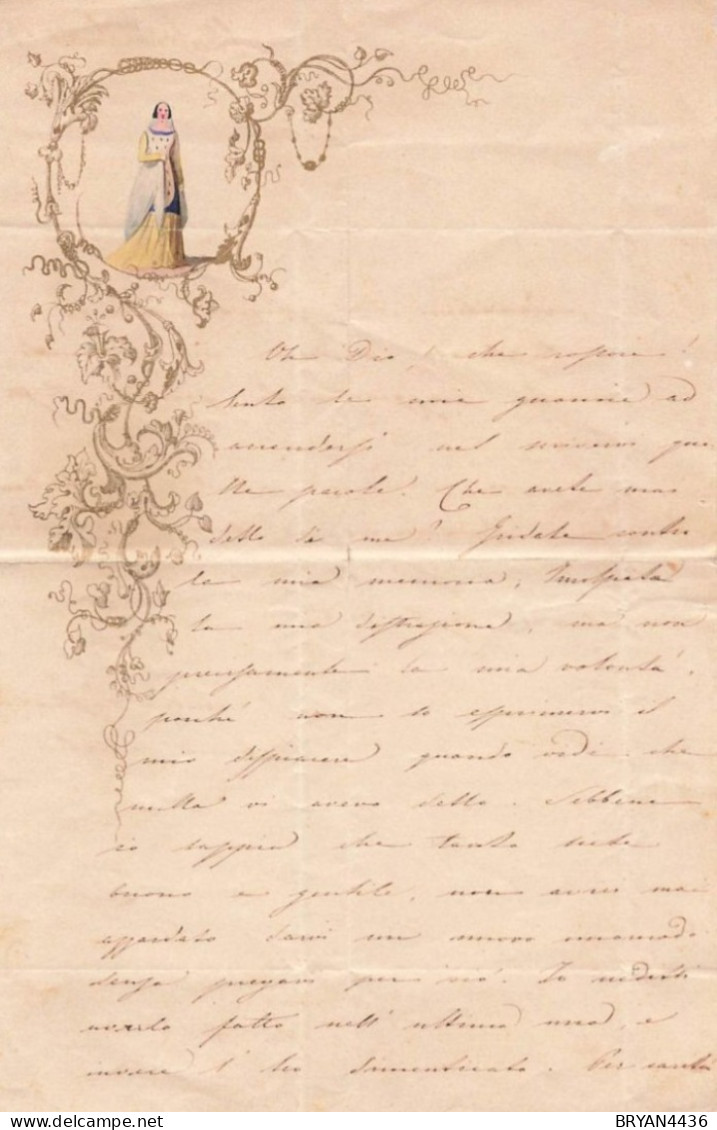 Oh Dio, che rossore!
Sento le mie guancie ad
accendersi nel scrivervi que-
lle parole. Che avete mai
detto di me? Gridate contro
la mia memoria,
la mia distrazione, ma non
precisamente la mia volontà,
perché non so esprimervi il
mio dispiacere quando vidi che
nulla vi avevo detto. Sebbene
io sappia che tanto siete
buono e gentile, non avrei mai
azzardato darvi un nuovo incomodo
senza pregarvi per ciò. Io credetti
averlo fatto nell' ultima mia, e
invece l' ho dimenticato. Per carità
delcampe.net
BRYAN4436